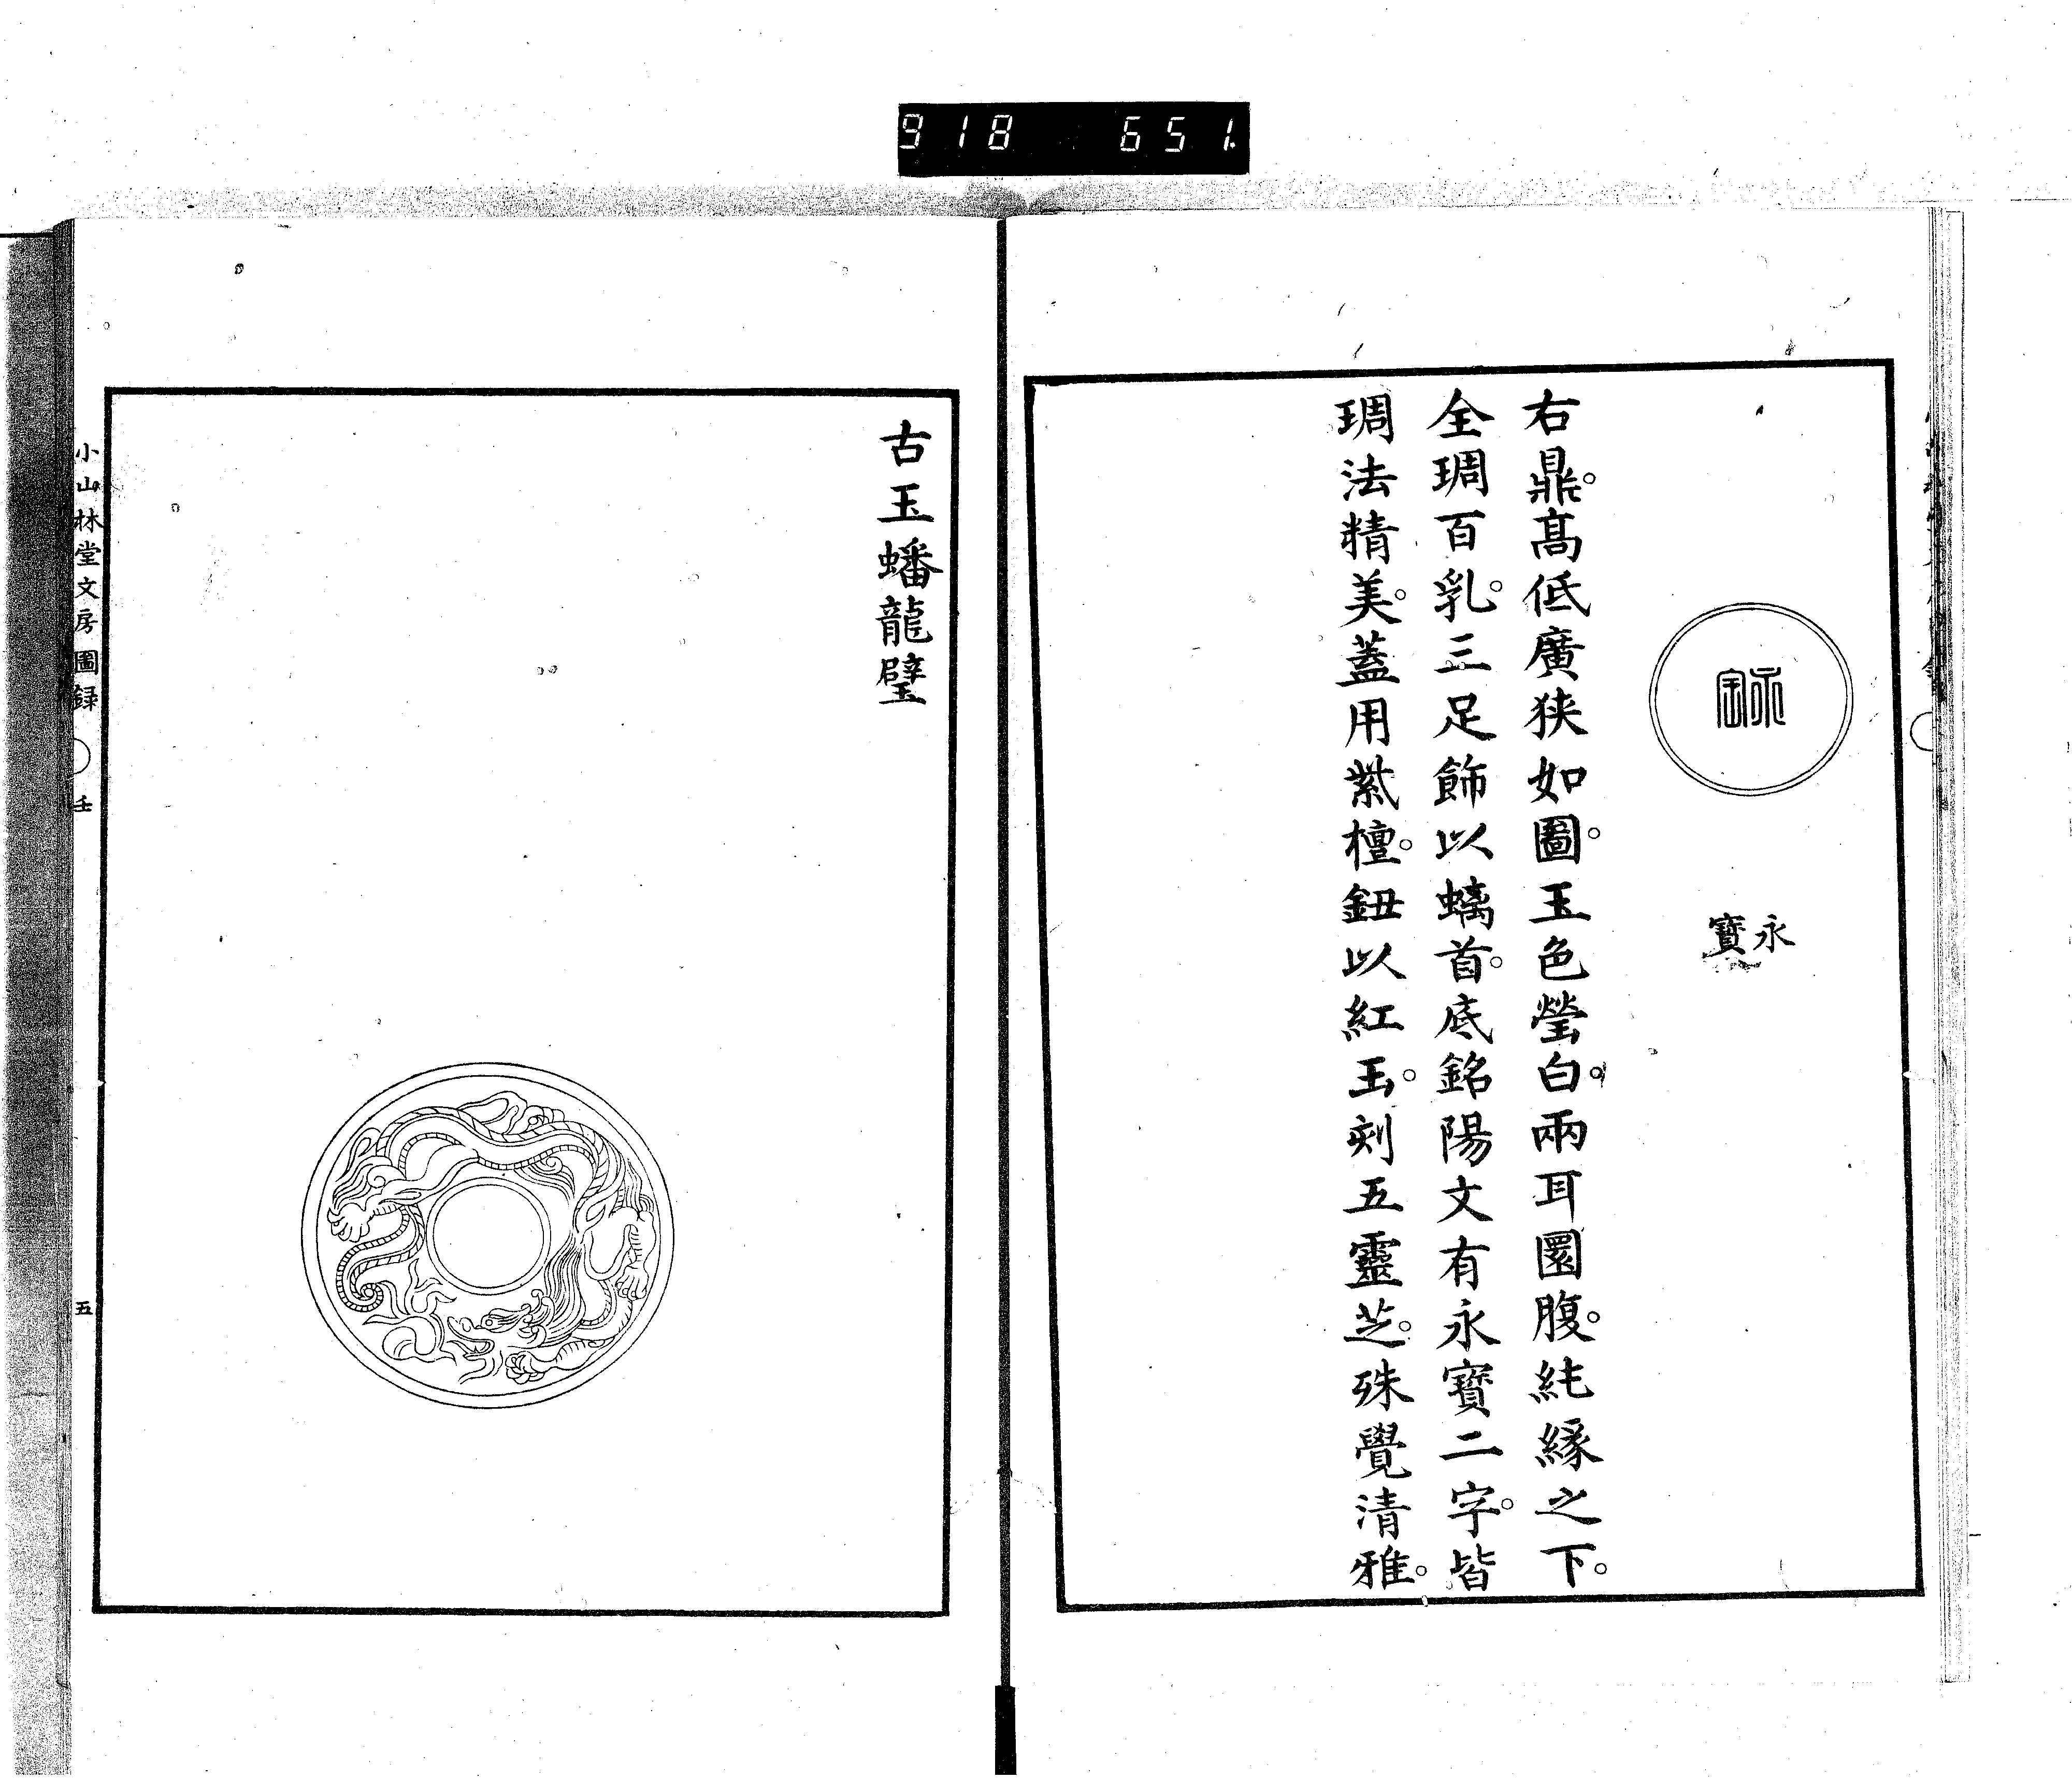 918 651.
永寶
永
寶
右鼎。高低廣狹如圖。玉色瑩白。兩耳圜腹。純縁之下。
全琱百乳。三足飾以螭首。底銘陽文有永寶二字。皆
琱法精美。蓋用紫檀。鈕以紅玉。刻五靈芝。殊覺清雅。
古玉蟠龍璧
小山林堂文房圖録 〇 壬 五